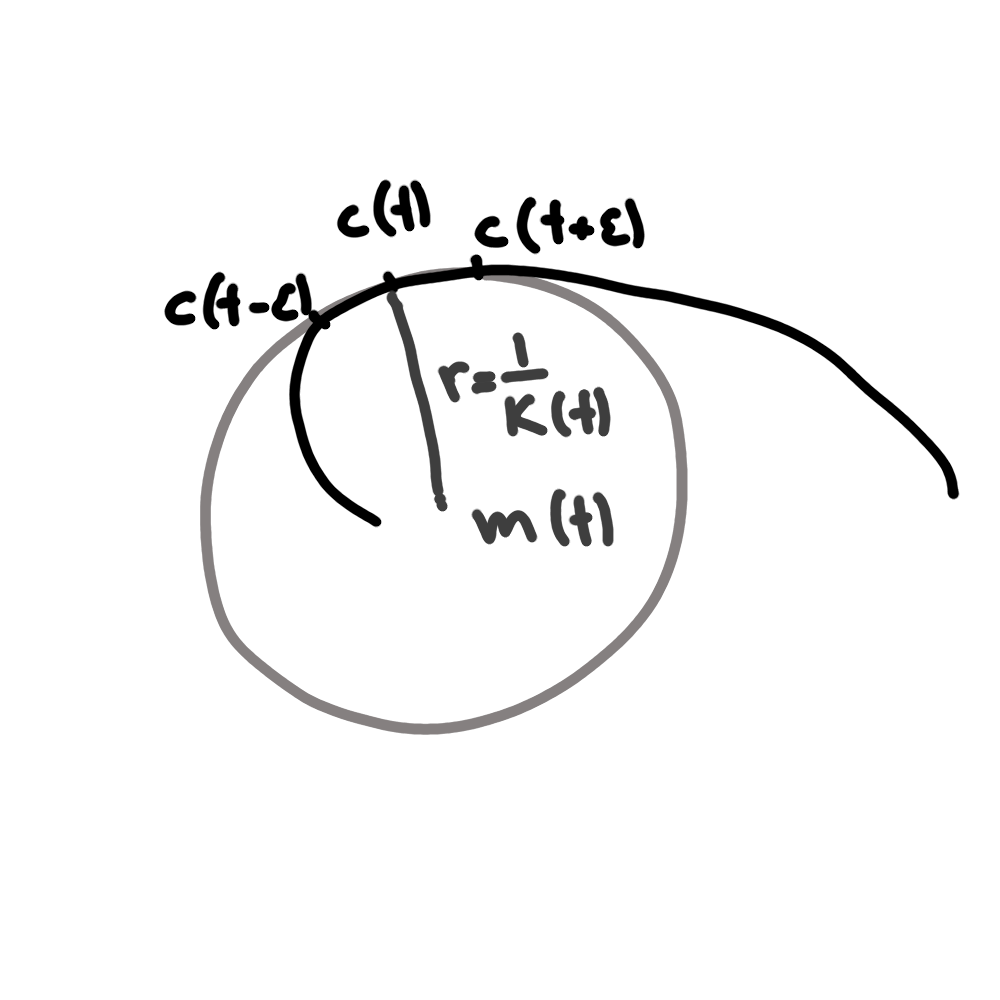 c(t)
c(t+ε)
c(t-ε)
r=1/K(t)
m(t)